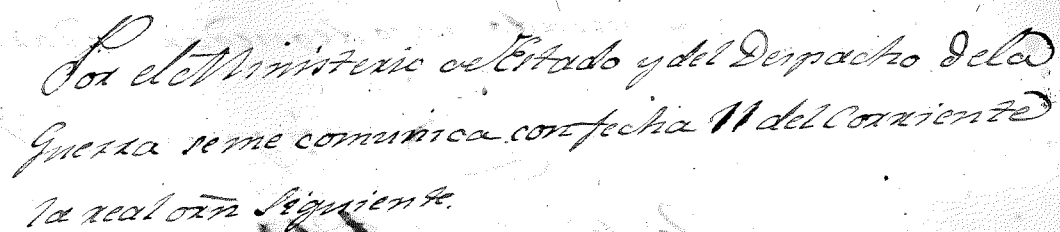 Por el Ministerio de Estado y del Despacho dela
Guerra seme comunica con fecha 11 del Corriente
la real orñ Siguiente.